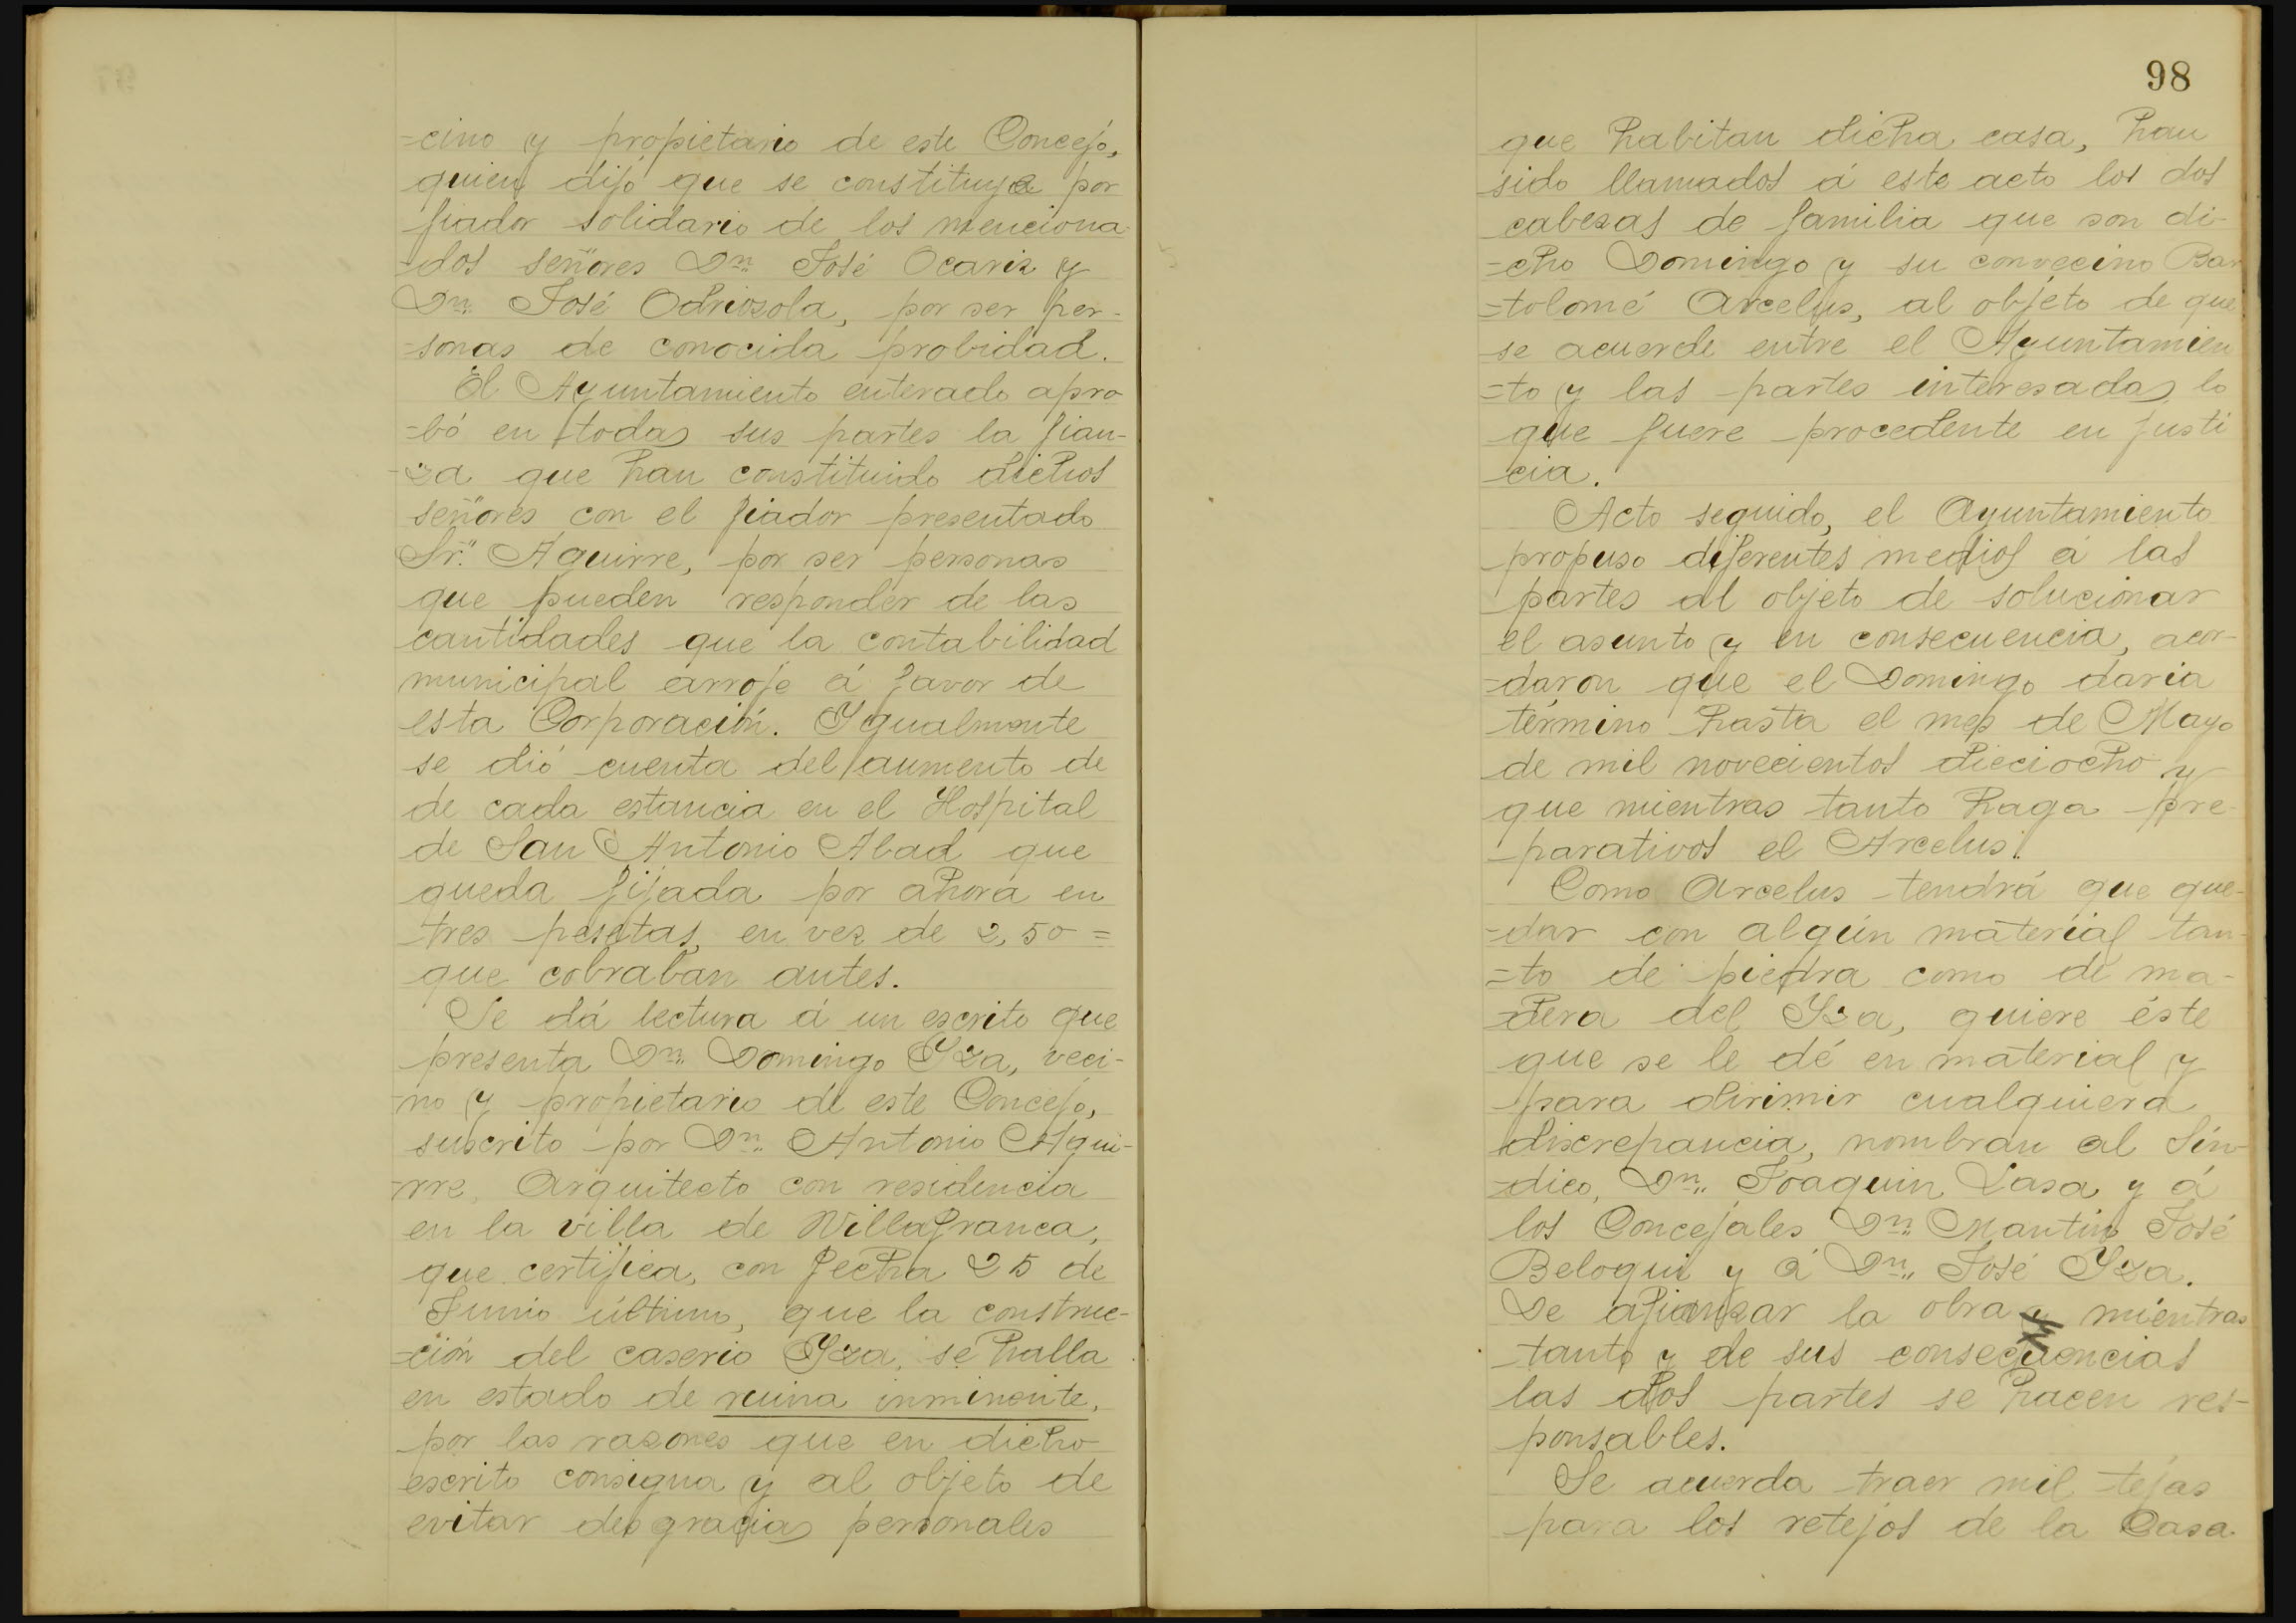 =cino y propietario de este Concejo,
quien dijo que se constituye por
fiador solidario de los menciona
=dos señores Dn. José Ocariz y
Dn. José Odriozola, por ser per-
=sonas de conocida probidad.
El Ayuntamiento enterado apro
=bó en todas sus partes la fian-
=za que han constituido dichos
señores con el fiador presentado
Sr. Aguirre, por ser personas
que pueden responder de las
cantidades que la contabilidad
municipal arroje á favor de
esta Corporación. Ygualmente
se dió cuenta del aumento de
de cada estancia en el Hospital
de San Antonio Abad que
queda fijada por ahora en
tres pesetas, en vez de 2,50=
que cobraban antes.
Se dá lectura á un escrito que
presenta Dn. Domingo Yza, veci-
=no y propietario de este Concejo,
suscrito por Dn. Antonio Agui-
=rre, Arquitecto con residencia
en la villa de Villafranca,
que certifica, con fecha 25 de
Junio último, que la construc-
=ción del caserio Yza, se halla
en estado de ruina inminente,
por las razones que en dicho
escrito consigna y al objeto de
evitar desgracias personales
98
que habitan dicha casa, han
sido llamados á este acto los dos
cabezas de familia que son di-
=cho Domingo y su convecino Bar
=tolomé Arcelus, al objeto de que
se acuerde entre el Ayuntamien
=to y las partes interesadas lo
que fuere procedente en justi
cia.
Acto seguido, el Ayuntamiento
propuso diferentes medios á las
partes al objeto de solucionar
el asunto y en consecuencia, acor-
=daron que el Domingo daria
término hasta el mes de Mayo
de mil novecientos dieciocho y
que mientras tanto haga pre-
=parativos el Arcelus.
Como Arcelus tendrá que que-
=dar con algún material tan-
=to de piedra como de ma-
=dera del Yza, quiere éste
que se le dé en material y
para dirimir cualquiera
discrepancia, nombran al Sín-
=dico, Dn. Joaquin Lasa y á
los Concejales Dn. Martin José
Beloqui y á Dn. José Yza.
De afianzar la obra mientras
tanto y de sus consecuencias
las dos partes se hacen res-
ponsables.
Se acuerda traer mil tejas
para los retejos de la Casa